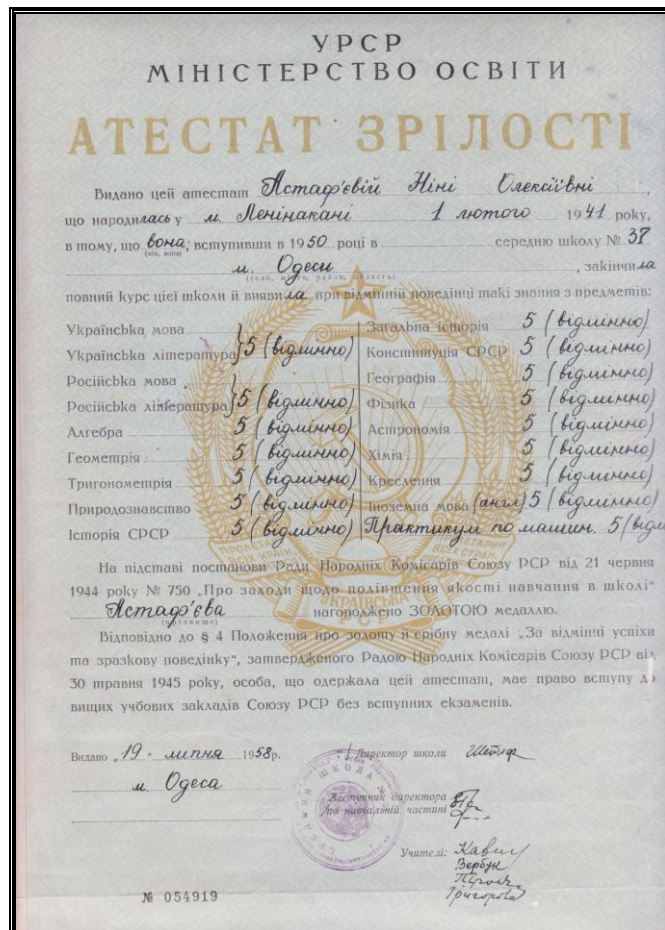 УРСР
МІНІСТЕРСТВО ОСВІТИ
АТЕСТАТ ЗРІЛОСТІ
Видано цей атестат Астаф'євій Ніні Олексіївні,
що народилась у м. Ленінакані 1 лютого 1941 року,
в тому, що вона, вступивши в 1950 році в середню школу № 37
(він, вона)
м. Одеси, закінчила
(село, місто, район, область)
повний курс цієї школи й виявила при відмінній поведінці такі знання з предметів:
Українська мова
Українська література } 5 (відмінно)
Російська мова
Російська література } 5 (відмінно)
Алгебра 5 (відмінно)
Геометрія 5 (відмінно)
Тригонометрія 5 (відмінно)
Природознавство 5 (відмінно)
Історія СРСР 5 (відмінно)
Загальна історія 5 (відмінно)
Конституція СРСР 5 (відмінно)
Географія 5 (відмінно)
Фізика 5 (відмінно)
Астрономія 5 (відмінно)
Хімія 5 (відмінно)
Креслення 5 (відмінно)
Іноземна мова (англ) 5 (відмінно)
Практикум по машин. 5 (відм
На підставі постанови Ради Народніх Комісарів Союзу РСР від 21 червня
1944 року № 750 „Про заходи щодо поліпшення якості навчання в школі“
Астаф'єва нагороджено ЗОЛОТОЮ медаллю.
(прізвище)
Відповідно до § 4 Положення про золоту й срібну медалі „За відмінні успіхи
та зразкову поведінку“, затвердженого Радою Народніх Комісарів Союзу РСР від
30 травня 1945 року, особа, що одержала цей атестат, має право вступу до
вищих учбових закладів Союзу РСР без вступних екзаменів.
Видано „19“ липня 1958р.
м. Одеса
Директор школи
Заступник директора
по навчальній частині
Учителі:
№ 054919